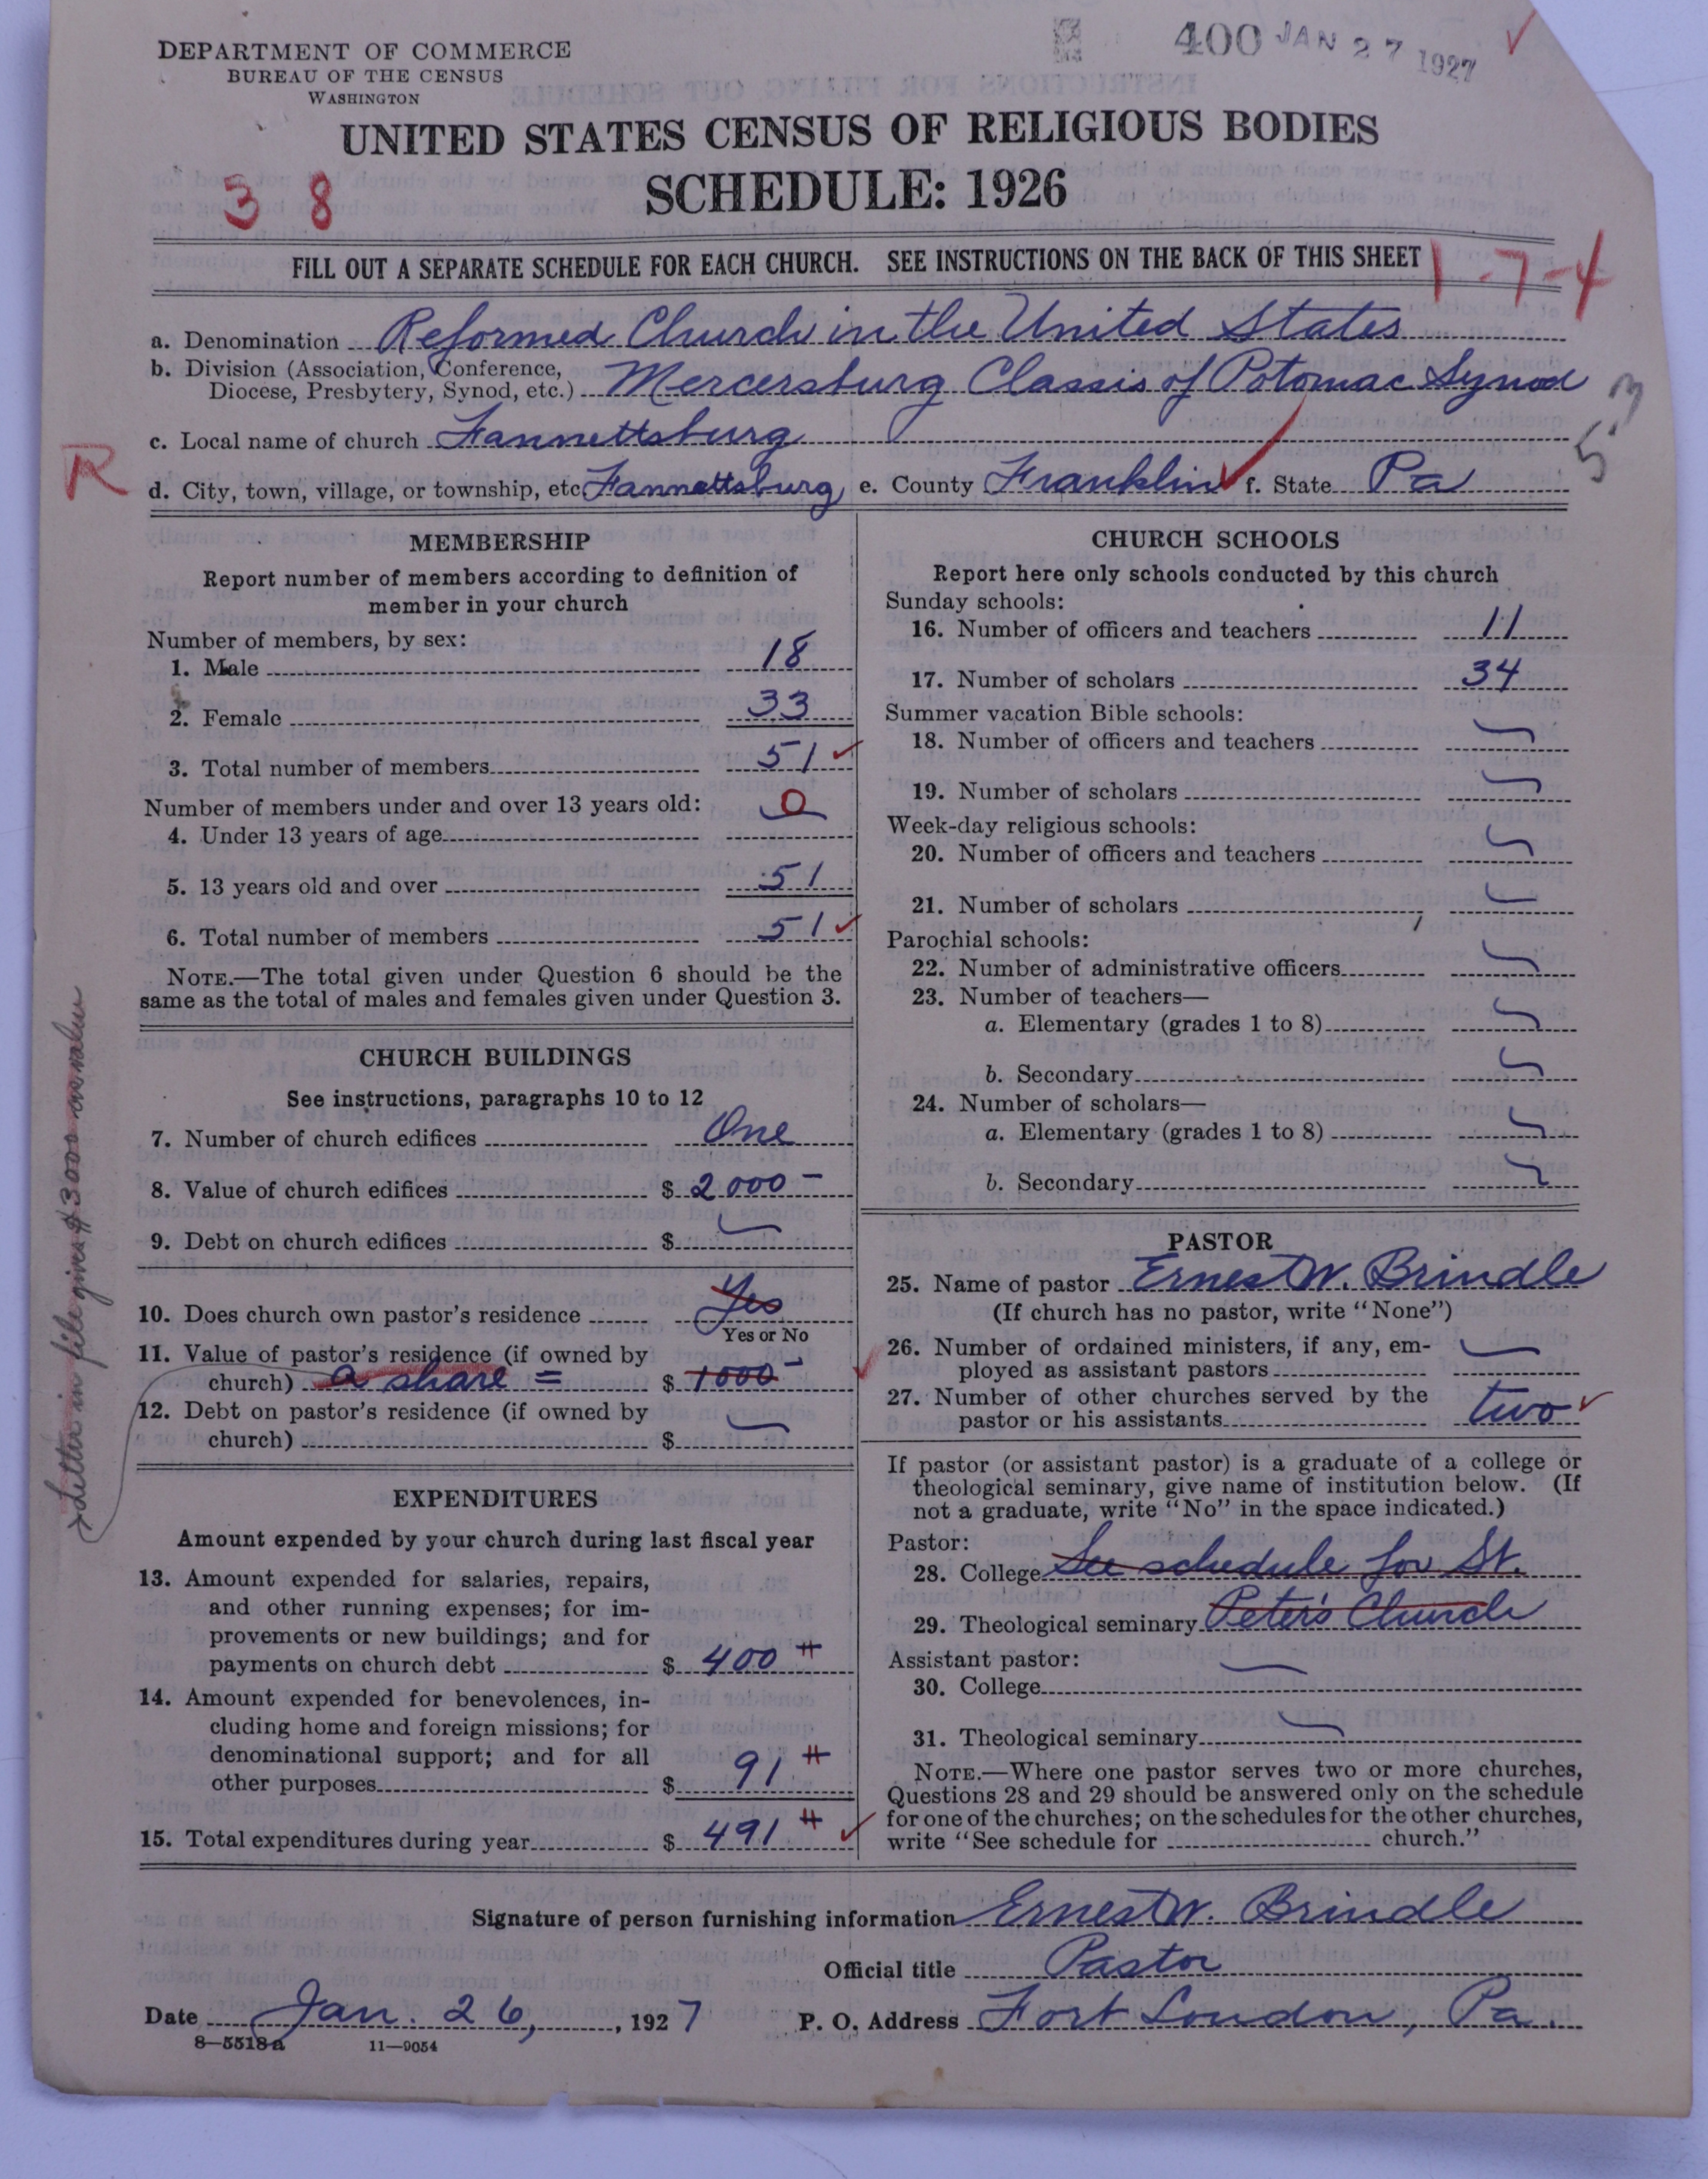 DEPARTMENT OF COMMERCE
BUREAU OF THE CENSUS
WASHINGTON
400 JAN 27 1927
UNITED STATES CENSUS OF RELIGIOUS BODIES
SCHEDULE: 1926
3 8
FILL OUT A SEPARATE SCHEDULE FOR EACH CHURCH. SEE INSTRUCTIONS ON THE BACK OF THIS SHEET
1-7-4
a. Denomination Reformed Church in the United States
b. Division (Association, Conference,
Diocese, Presbytery, Synod, etc.) Mercersburg Classis of Potomac Synod
53
c. Local name of church Fannettsburg
R
d. City, town, village, or township, etc Fannettsburg e. County Franklin f. State Pa
MEMBERSHIP
Report number of members according to definition of
member in your church
Number of members, by sex:
1. Male 18
2. Female 33
3. Total number of members 51
Number of members under and over 13 years old:
4. Under 13 years of age 0
5. 13 years old and over 51
6. Total number of members 51
NOTE.—The total given under Question 6 should be the
same as the total of males and females given under Question 3.
CHURCH BUILDINGS
See instructions, paragraphs 10 to 12
7. Number of church edifices One
8. Value of church edifices $ 2000-
9. Debt on church edifices $
10. Does church own pastor's residence Yes
Yes or No
11. Value of pastor's residence (if owned by
church) a share = $ 1000-
12. Debt on pastor's residence (if owned by
church) $
Letter in file gives $3000 as value
EXPENDITURES
Amount expended by your church during last fiscal year
13. Amount expended for salaries, repairs,
and other running expenses; for im-
provements or new buildings; and for
payments on church debt $ 400
14. Amount expended for benevolences, in-
cluding home and foreign missions; for
denominational support; and for all
other purposes $ 91
15. Total expenditures during year $ 491
CHURCH SCHOOLS
Report here only schools conducted by this church
Sunday schools:
16. Number of officers and teachers 11
17. Number of scholars 34
Summer vacation Bible schools:
18. Number of officers and teachers
19. Number of scholars
Week-day religious schools:
20. Number of officers and teachers
21. Number of scholars
Parochial schools:
22. Number of administrative officers
23. Number of teachers—
a. Elementary (grades 1 to 8)
b. Secondary
24. Number of scholars—
a. Elementary (grades 1 to 8)
b. Secondary
PASTOR
25. Name of pastor Ernest W. Brindle
(If church has no pastor, write "None")
26. Number of ordained ministers, if any, em-
ployed as assistant pastors
27. Number of other churches served by the
pastor or his assistants two
If pastor (or assistant pastor) is a graduate of a college or
theological seminary, give name of institution below. (If
not a graduate, write "No" in the space indicated.)
Pastor:
28. College See schedule for St.
29. Theological seminary Peter's Church
Assistant pastor:
30. College
31. Theological seminary
NOTE.—Where one pastor serves two or more churches,
Questions 28 and 29 should be answered only on the schedule
for one of the churches; on the schedules for the other churches,
write "See schedule for church."
Signature of person furnishing information Ernest W. Brindle
Official title Pastor
Date Jan. 26, , 1927 P. O. Address Fort Loudon, Pa.
8—5518a 11—9054